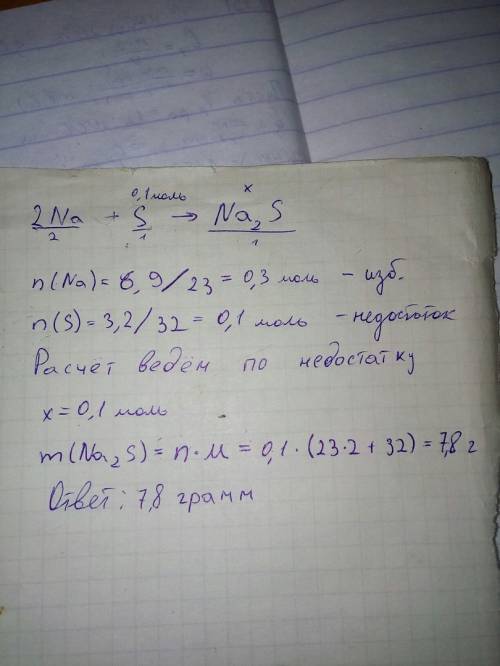 0,1 моль x
2Na + S → Na₂S
2 1 1
n(Na) = 6,9/23 = 0,3 моль – изб.
n(S) = 3,2/32 = 0,1 моль – недостоток
Расчёт ведём по недостатку
x = 0,1 моль
m(Na₂S) = n·M = 0,1·(23·2 + 32) = 7,8 г
Ответ: 7,8 грамм